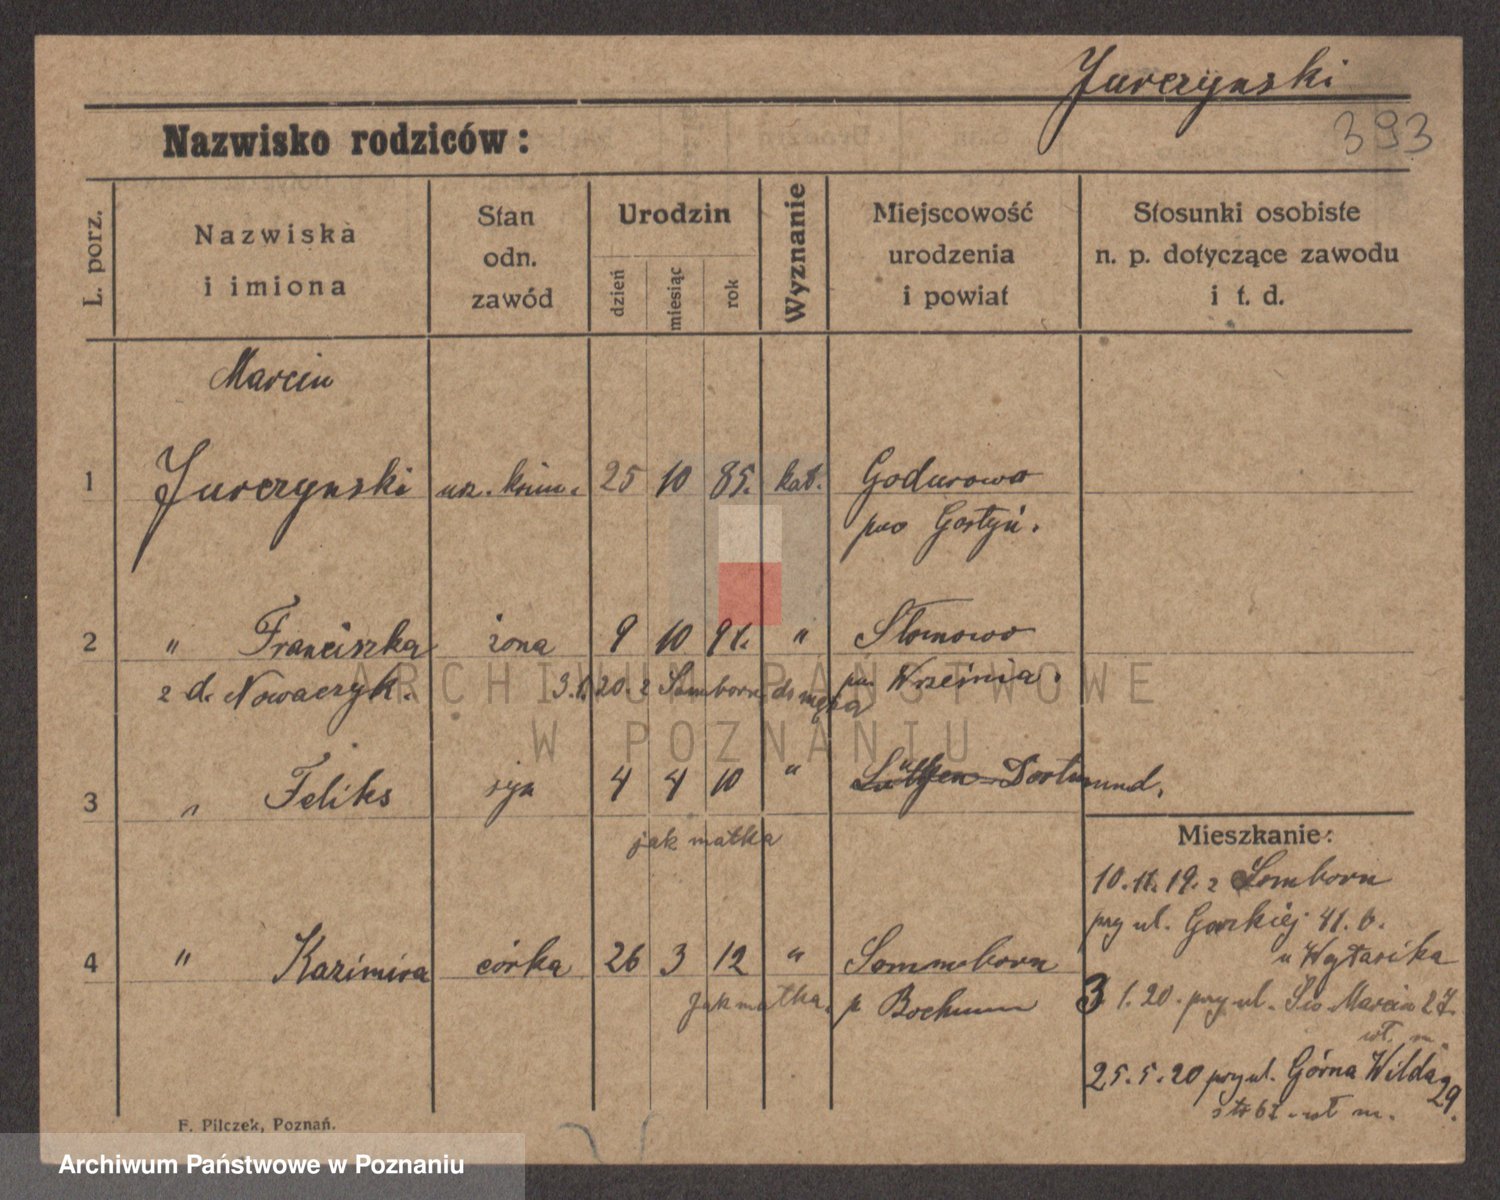 Jurczynski
393
Nazwisko rodziców:
L. porz.
Nazwiska
i imiona
Stan
odn.
zawód
Urodzin
dzień
miesiąc
rok
Wyznanie
Miejscowość
urodzenia
i powiat
Stosunki osobiste
n. p. dotyczące zawodu
i t. d.
Marcin
1 Jurczynski urz. krim. 25 10 85. kat. Godurowo
pow Gostyń.
2 " Franciszka żona 9 10 91. " Słomowo
z d. Nowaczyk. 3.1.20. z Somborn do męża pow. Września.
3 " Feliks syn 4 4 10 " Lütgen-Dortmund.
jak matka
Mieszkanie:
10.11.19. z Somborn
przy ul. Gorzkiej 41. b.
u Wytasika
4 " Kazimira córka 26 3 12 " Sommborn
jak matka. p Bochum
3 1.20. przy ul. Św Marcin 27.
wł. m.
25.5.20 przy ul. Górna Wilda 29.
wł m.
F. Pilczek, Poznań.
ARCHIWUM PAŃSTWOWE
W POZNANIU
Archiwum Państwowe w Poznaniu